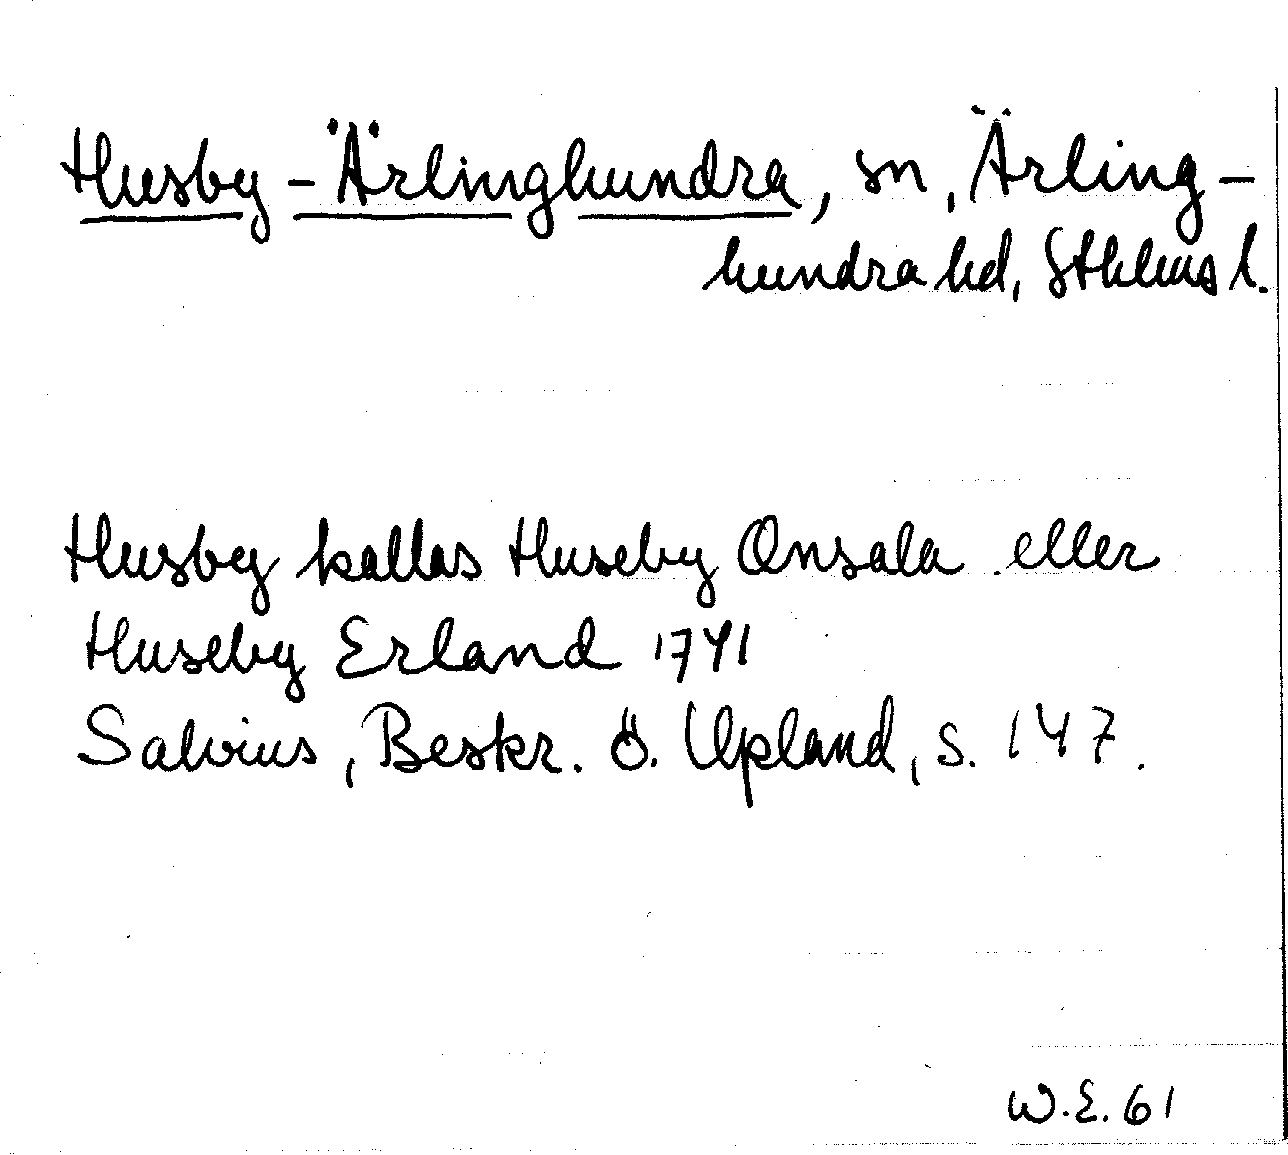 Husby-Ärlinghundra, sn, Ärling-
hundra hd, Sthlms l.
Husby kallas Huseby Onsala eller
Huseby Erland 1741
Salvius, Beskr. ö. Upland, s. 147.
W.E. 61